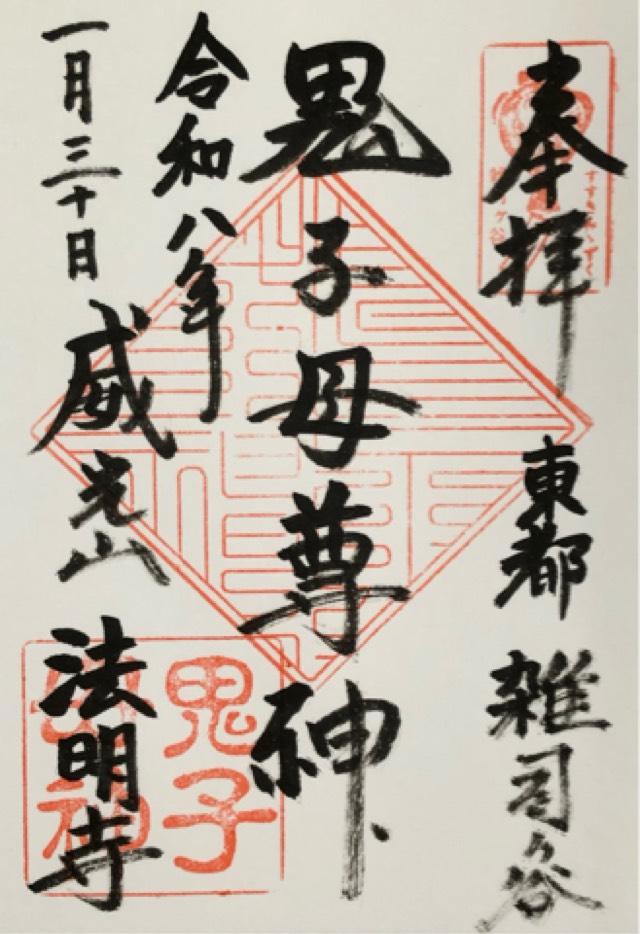 奉拝
東都 雑司ヶ谷
鬼子母尊神
令和八年
一月三十日
威光山 法明寺
鬼子
母神
すすきみゝずく